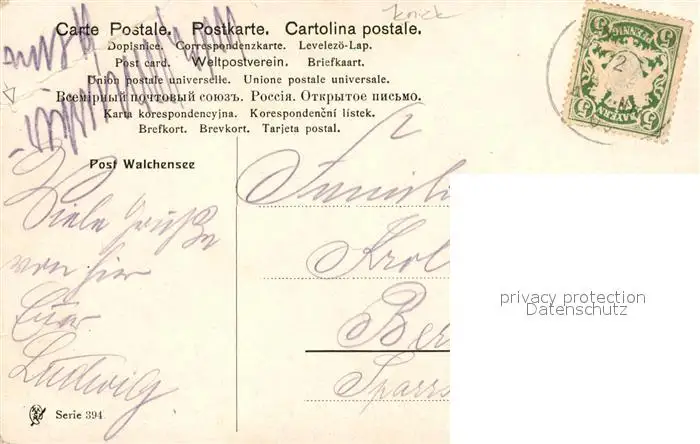 Carte Postale. Postkarte. Cartolina postale.
Dopisnice. Correspondenzkarte. Levelező-Lap.
Post card. Weltpostverein. Briefkaart.
Union postale universelle. Unione postale universale.
Всемірный почтовый союзъ. Россія. Открытое письмо.
Karta korespondencyjna. Korespondenční lístek.
Brefkort. Brevkort. Tarjeta postal.
Post Walchensee
Viele Grüße
von hier
Euer
Ludwig.
Familie
Krol
Ber
Sparrs
Serie 394
5 PFENNIG 5
BAYERN
2
privacy protection
Datenschutz